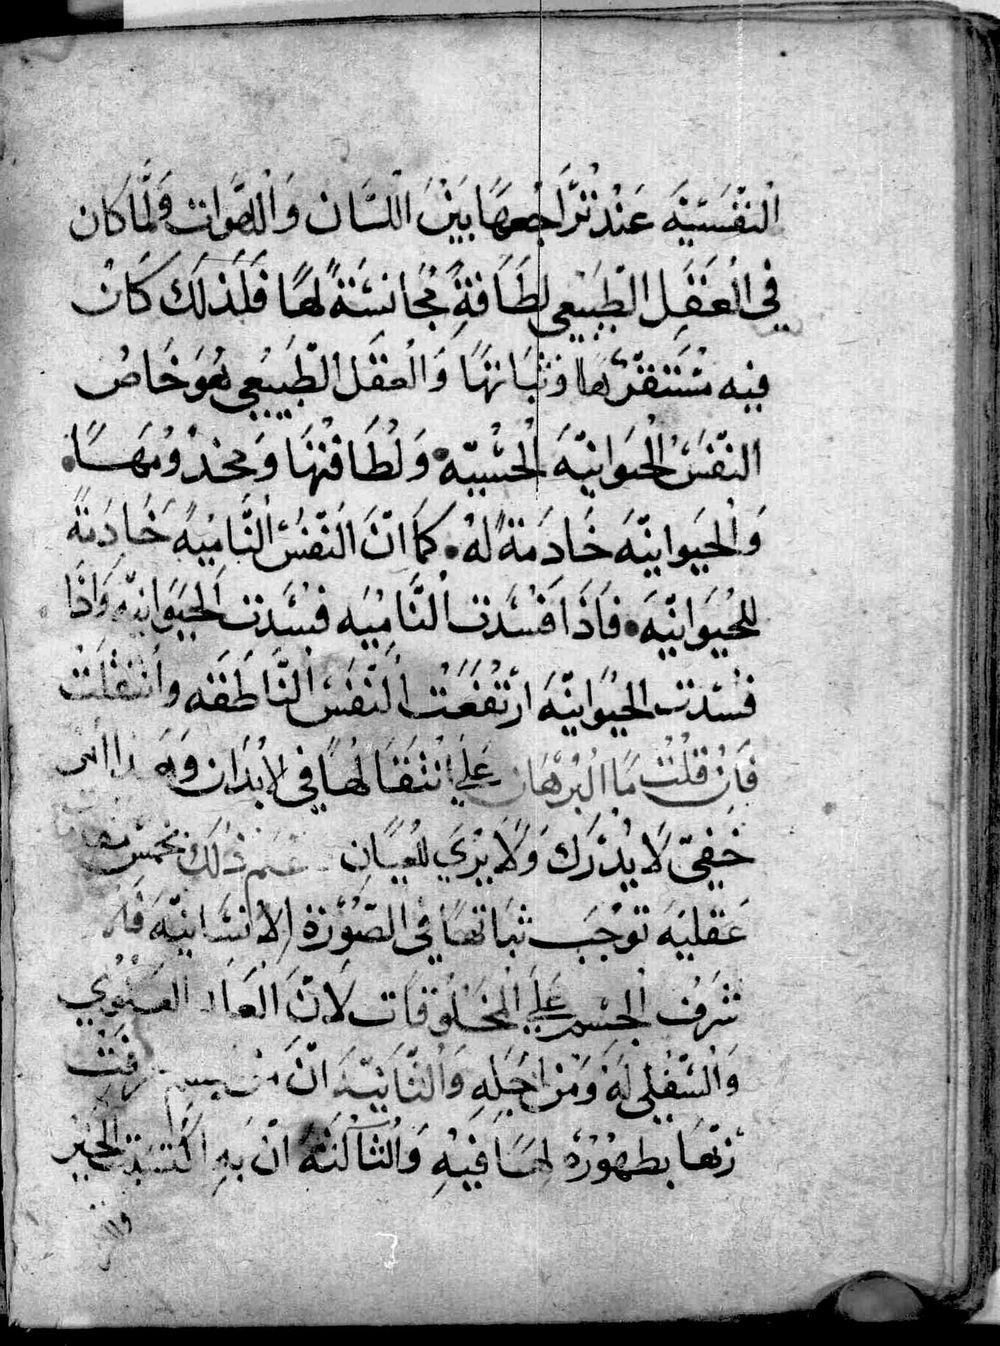 اَلنَّفْسَيَّة عَنْدَ تَرَاجُعهَا بَيْنَ اللسَّان وَاللهَّوَات وَلمَّا كَان
في العَقَل الطَبيَعي لطَاَفةً مُجَانسَةً لهَا فَلَذلَكَ كَانَ
فيه مسُتَقرّهَا وَثَبَاتهَا وَالعَقَل الطَّبيَعي هُوَ خَاصُ
النّفَسْ الحَيوانيّهَ الحسَّيّه وَلطَافتْهَا وَمخدُومُهَا
وَالحيوانيّه خَادَمَة لَهُ كمَا انَّ النّفسُ النَّاميْه خَادِمَةً
للحيُوَانيّهَ فاَذَا فَسْدَت النَّاميْه فسَدَت الحَيَوانيّه وَاذَا
فسْدَت الحيُوَانيّهَ ارتَفَعَت النّفَسْ النَّاطقَه وَانتقَلَتْ
فَانْ قُلْتَ مَا البُرهَان عَلىَ انتَقَالهَا في الابْدَان وَهَذا امر
خَفيّ لَا يُدْرَك وَلَا يُرَي للعيَانِ نَعَم ذلَك بخمَس
عَقليَه تَوجَب ثبَاتهَا في الصّوُرَة الانسَانيّه
شَرَف الجسْم عَلَى المخَلُوقَات لَانَّ العَالم العَلوُي
وَالسّفْلي لَهَ وَمنَ اجَلِهِ وَالثَّانيَة انَّ منْ عرفَتْ
ربّهَا بظهُورُهُ لهَا فيْهِ وَالثَّالثَةُ انّ بَهِ اكتَسَبَت الخيَر